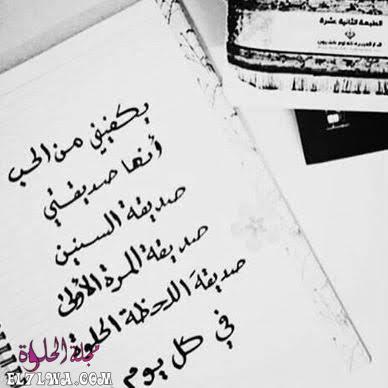 الطبعة الثانية عشرة
يكفيني من الحب
أنها صديقتي
صديقة السنين
صديقة المرة الأولى
صديقة اللحظة الحلوة
في كل يوم
مجلة الحلوة
EL71WA.COM